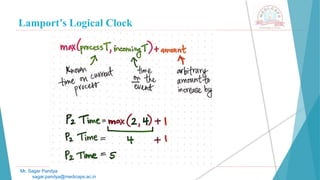 Lamport's Logical Clock
max(processT, incomingT) + amount
Known time on current process
time on the event
arbitrary amount to increase by
P2 Time = max(2,4) + 1
P2 Time = 4 + 1
P2 Time = 5
Mr. Sagar Pandya
sagar.pandya@medicaps.ac.in